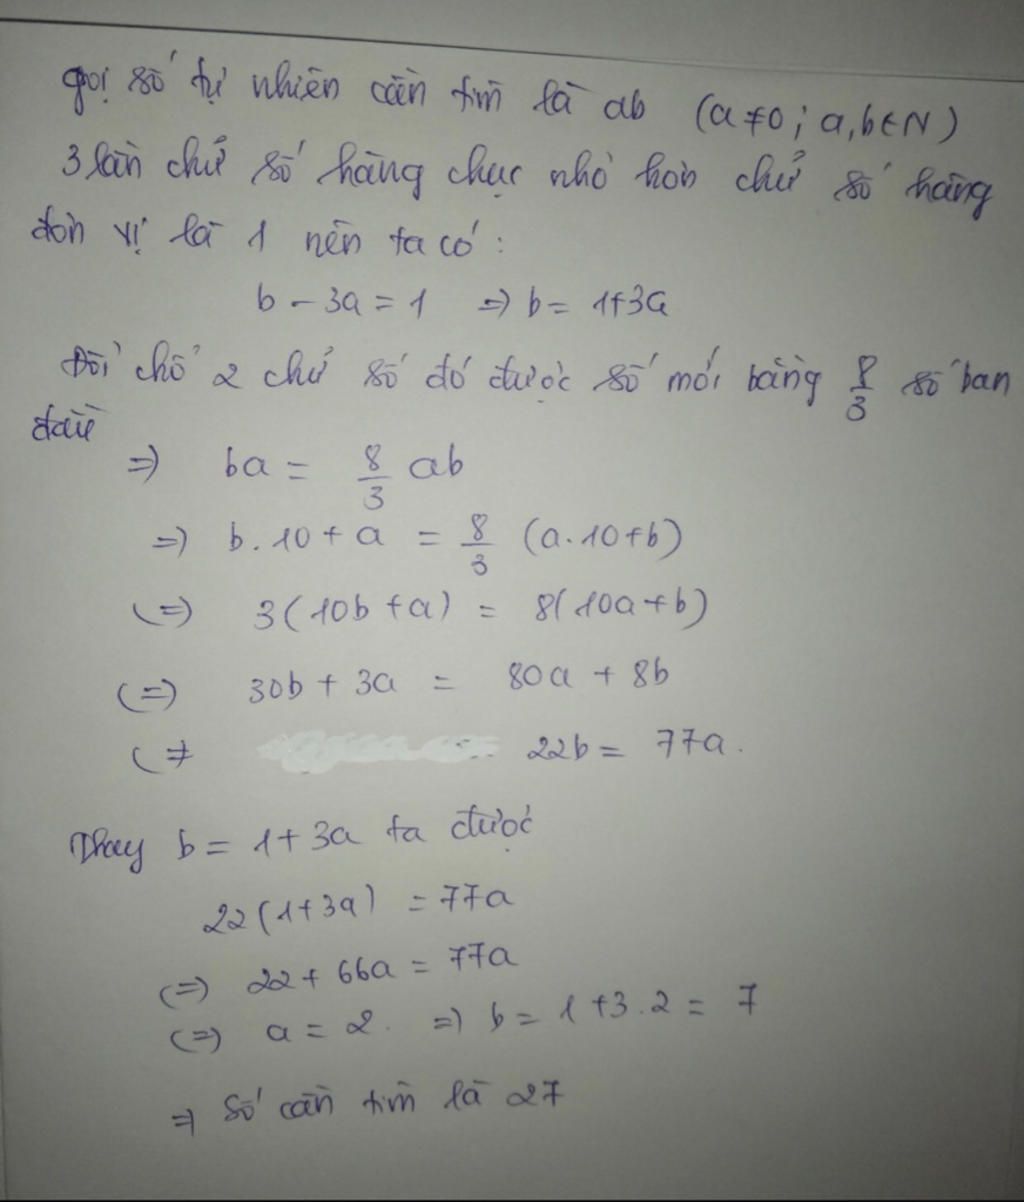 gọi số tự nhiên cần tìm là ab (a≠0; a,b∈N)
3 lần chữ số hàng chục nhỏ hơn chữ số hàng
đơn vị là 1 nên ta có:
b - 3a = 1 => b = 1+3a
Đổi chỗ 2 chữ số đó được số mới bằng 8/3 số ban
đầu
=> ba = 8/3 ab
=> b.10 + a = 8/3 (a.10+b)
(=) 3(10b + a) = 8(10a+b)
(=) 30b + 3a = 80a + 8b
(= 22b = 77a.
Thay b = 1+3a ta được
22(1+3a) = 77a
(=) 22 + 66a = 77a
(=) a = 2. => b = 1+3.2 = 7
=> Số cần tìm là 27